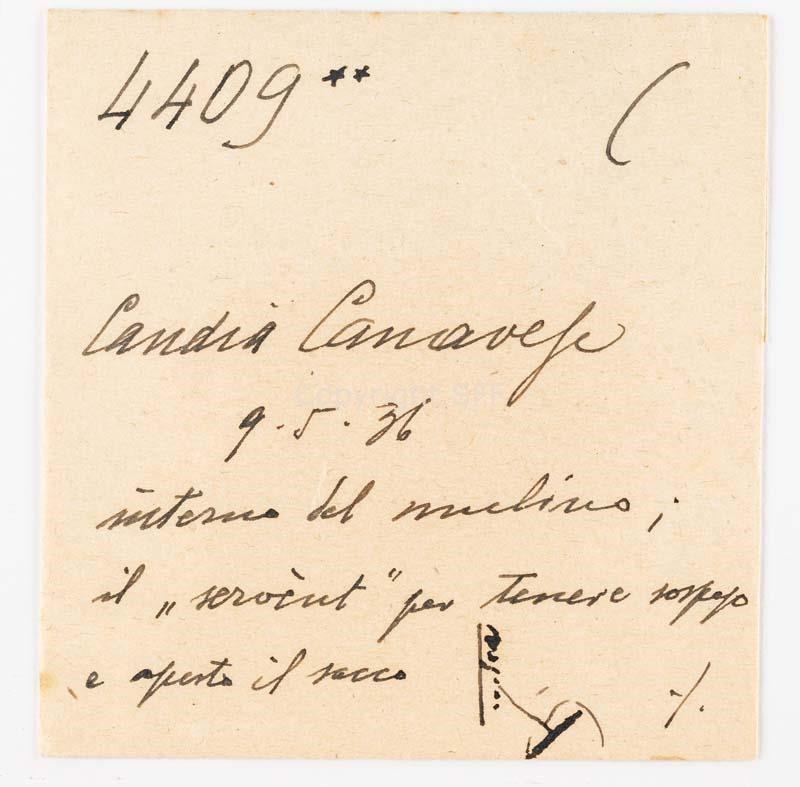 4409 ** (
Candia Canavese
9.5.36
interno del mulino;
il „servènt" per tenere sospeso
e aperto il sacco ./.